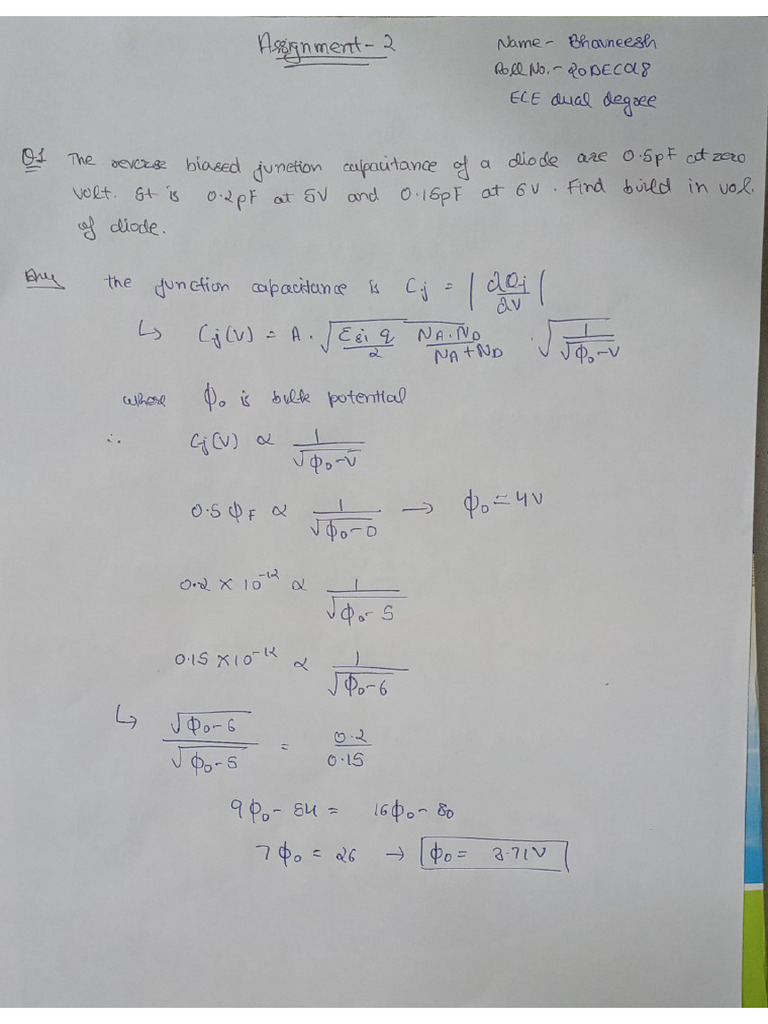 Assignment-2
Name- Bhavneesh
Roll No.- 20DEC018
ECE dual degree
Q1 The reverse biased junction capacitance of a diode are 0.5pF at zero
volt. It is 0.2pF at 5V and 0.15pF at 6V. Find build in vol.
of diode.
Ans the junction capacitance is Cj = |dQj/dv|
↳ Cj(V) = A. √(εsi q/2 NA.ND/NA+ND) . √(1/√φ0-V)
where φ0 is bulk potential
∴ Cj(V) ∝ 1/√φ0-V
0.5 φF ∝ 1/√φ0-0 → φ0 = 4V
0.2 × 10^-12 ∝ 1/√φ0-5
0.15 ×10^-12 ∝ 1/√φ0-6
↳ √φ0-6/√φ0-5 = 0.2/0.15
9φ0- 54 = 16φ0- 80
7φ0 = 26 → φ0 = 3.71V